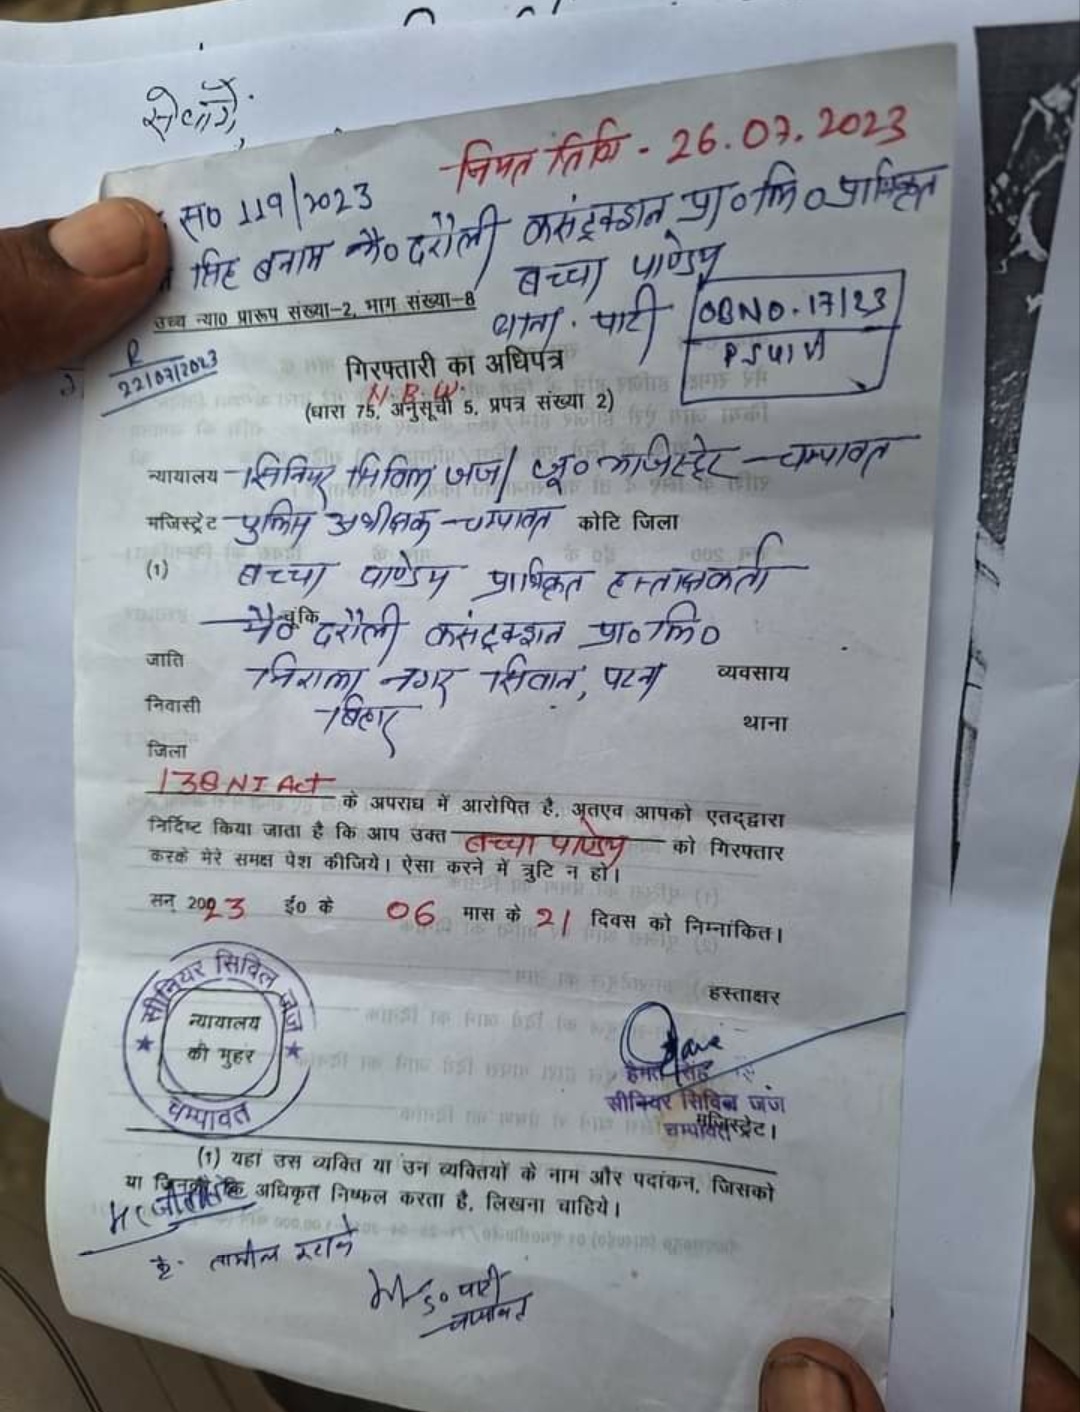 सेवामें,
नियत तिथि - 26.07.2023
स० 119/2023
सिंह बनाम मै० दरौली कंसंट्रक्शन प्रा० लि० प्राधिकृत
बच्चा पाण्डेय
थाना. पाटी
OBNO. 17/23
PS पाटी
उच्च न्या० प्रारूप संख्या-2, भाग संख्या-8
R
22/07/2023
गिरफ्तारी का अधिपत्र
N.B.W.
(धारा 75, अनुसूची 5, प्रपत्र संख्या 2)
न्यायालय सिनियर सिविल जज/ जू० मजिस्ट्रेट - चम्पावत
मजिस्ट्रेट पुलिस अधीक्षक - चम्पावत कोटि जिला
(1) बच्चा पाण्डेय प्राधिकृत हस्ताक्षकर्ता
चूंकि मै० दरौली कंसंट्रक्शन प्रा० लि०
जाति निराला नगर सिवान, पटना व्यवसाय
निवासी बिहार थाना
जिला
138 NI Act के अपराध में आरोपित है, अतएव आपको एतद्द्वारा
निर्दिष्ट किया जाता है कि आप उक्त बच्चा पाण्डेय को गिरफ्तार
करके मेरे समक्ष पेश कीजिये। ऐसा करने में त्रुटि न हो।
सन् 20023 ई० के 06 मास के 21 दिवस को निम्नांकित।
हस्ताक्षर
सीनियर सिविल जज
न्यायालय
की मुहर
चम्पावत
हेमंत सिंह
सीनियर सिविल जज
चम्पावत
मजिस्ट्रेट।
(1) यहां उस व्यक्ति या उन व्यक्तियों के नाम और पदांकन, जिसको
या जिनको कि अधिकृत निष्फल करता है, लिखना चाहिये।
तामील कराने
S० पाटी
चम्पावत